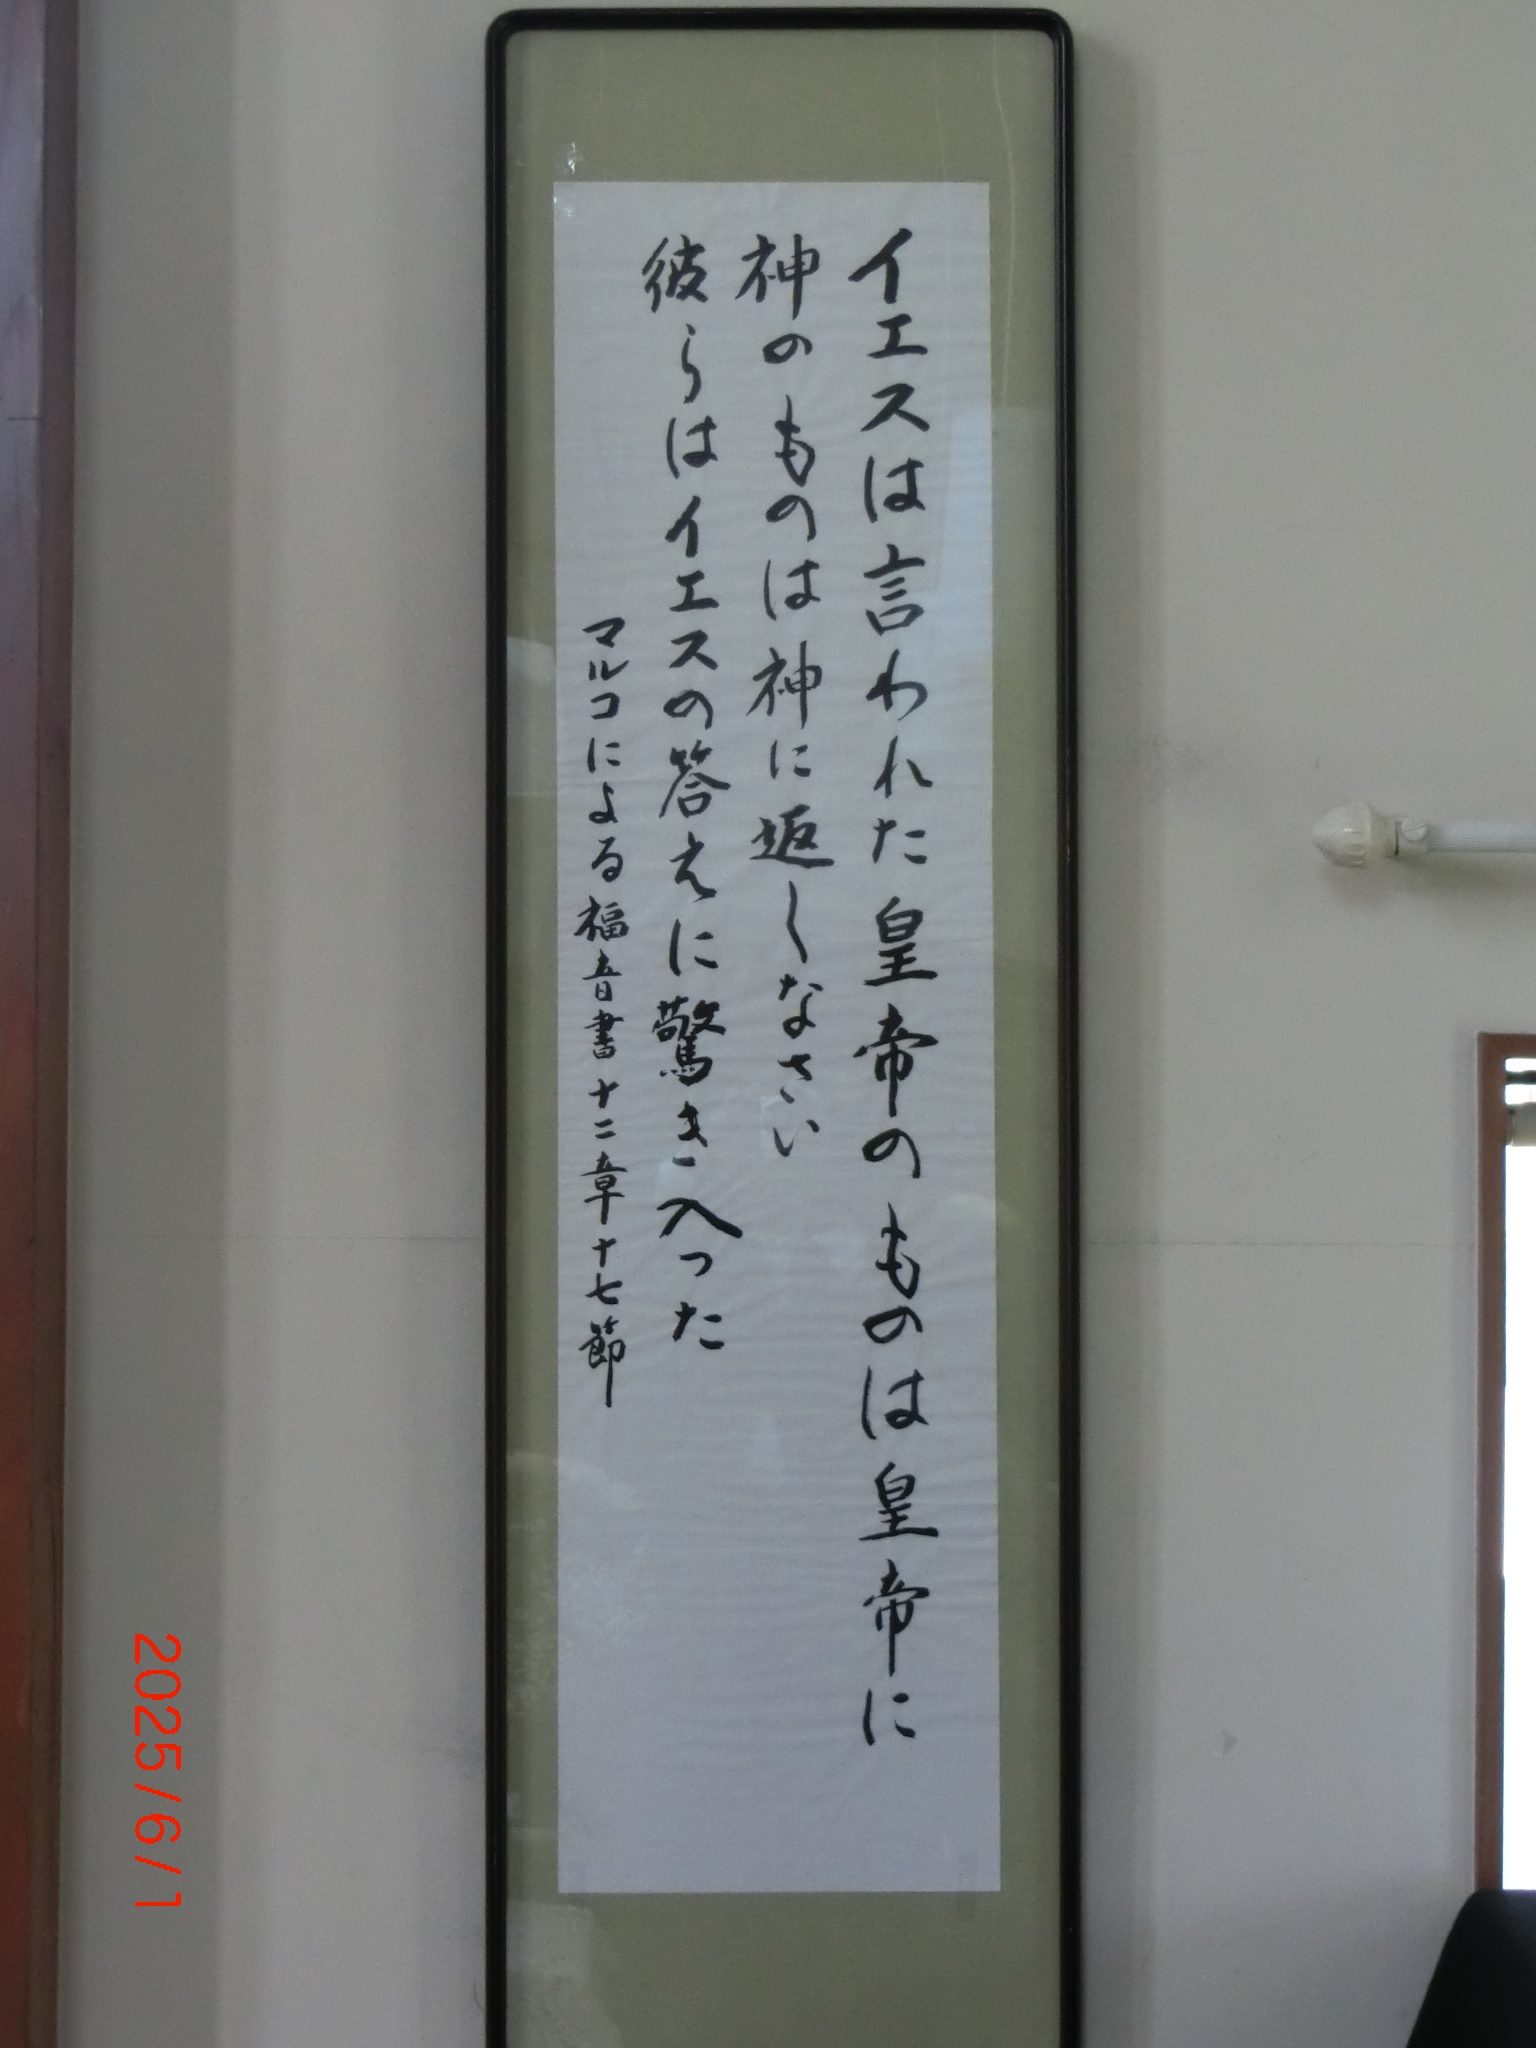 イエスは言われた皇帝のものは皇帝に
神のものは神に返しなさい
彼らはイエスの答えに驚き入った
マルコによる福音書十二章十七節
2025/6/1